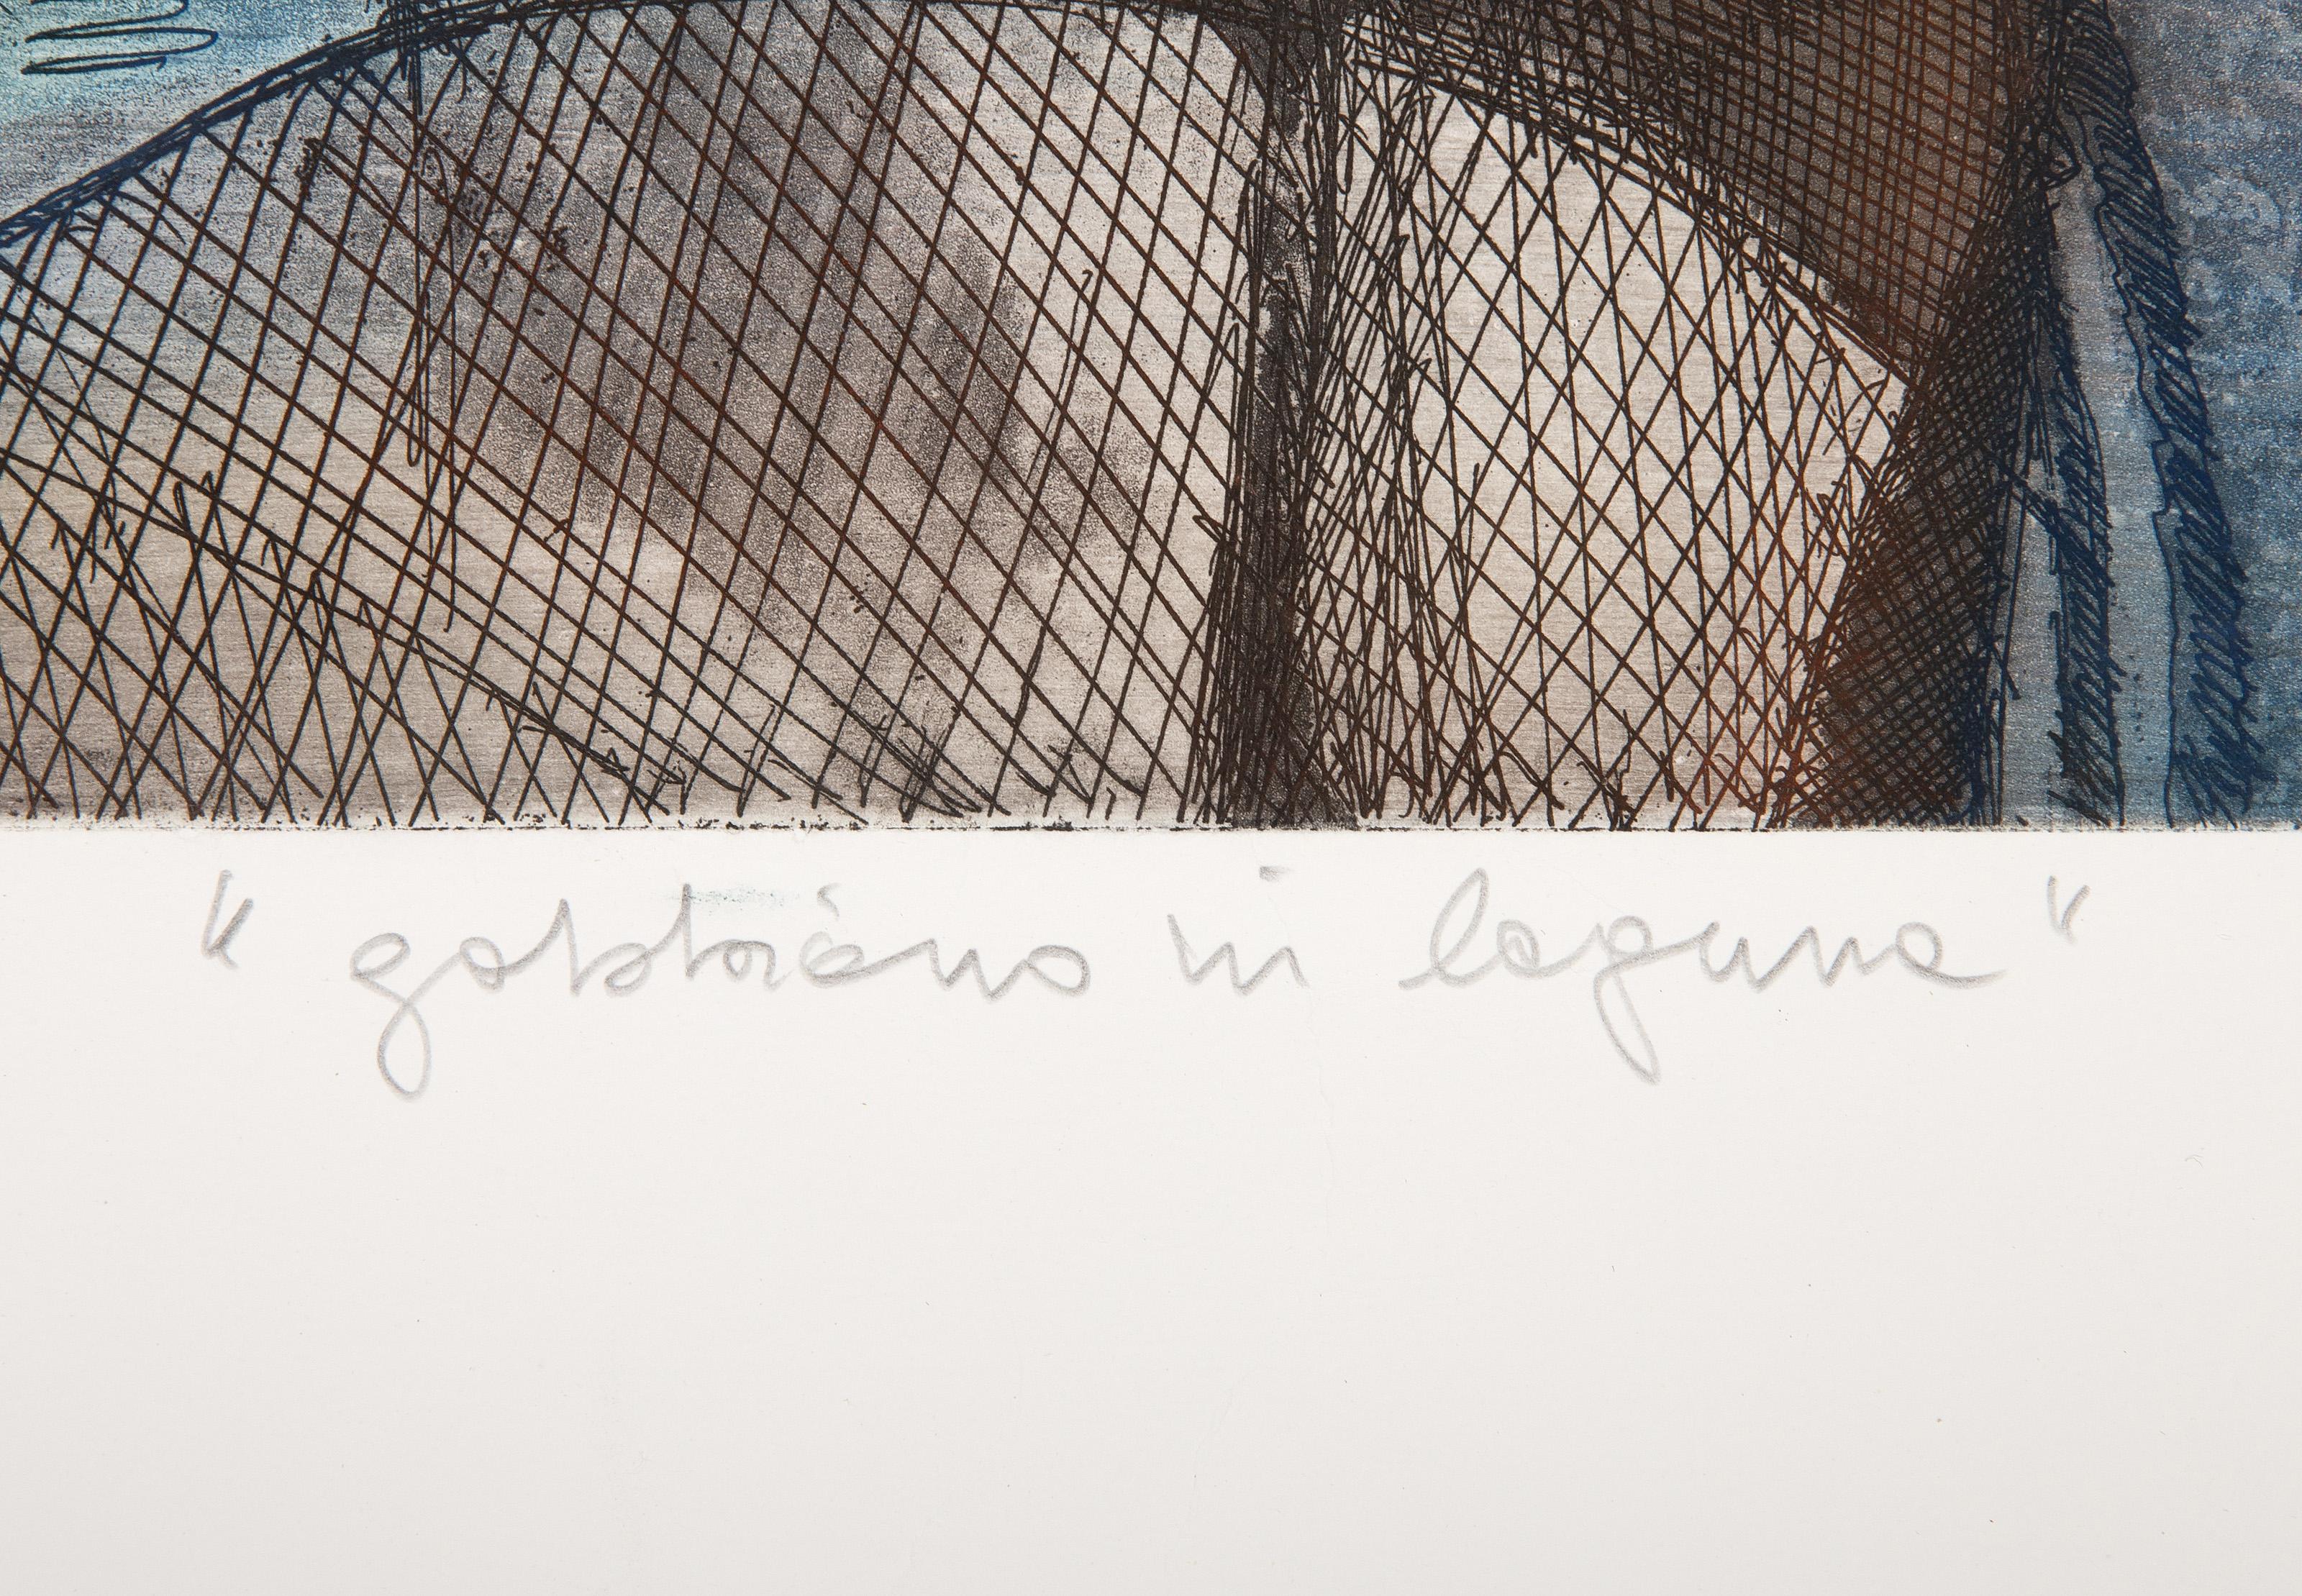 "gabbiano in laguna"